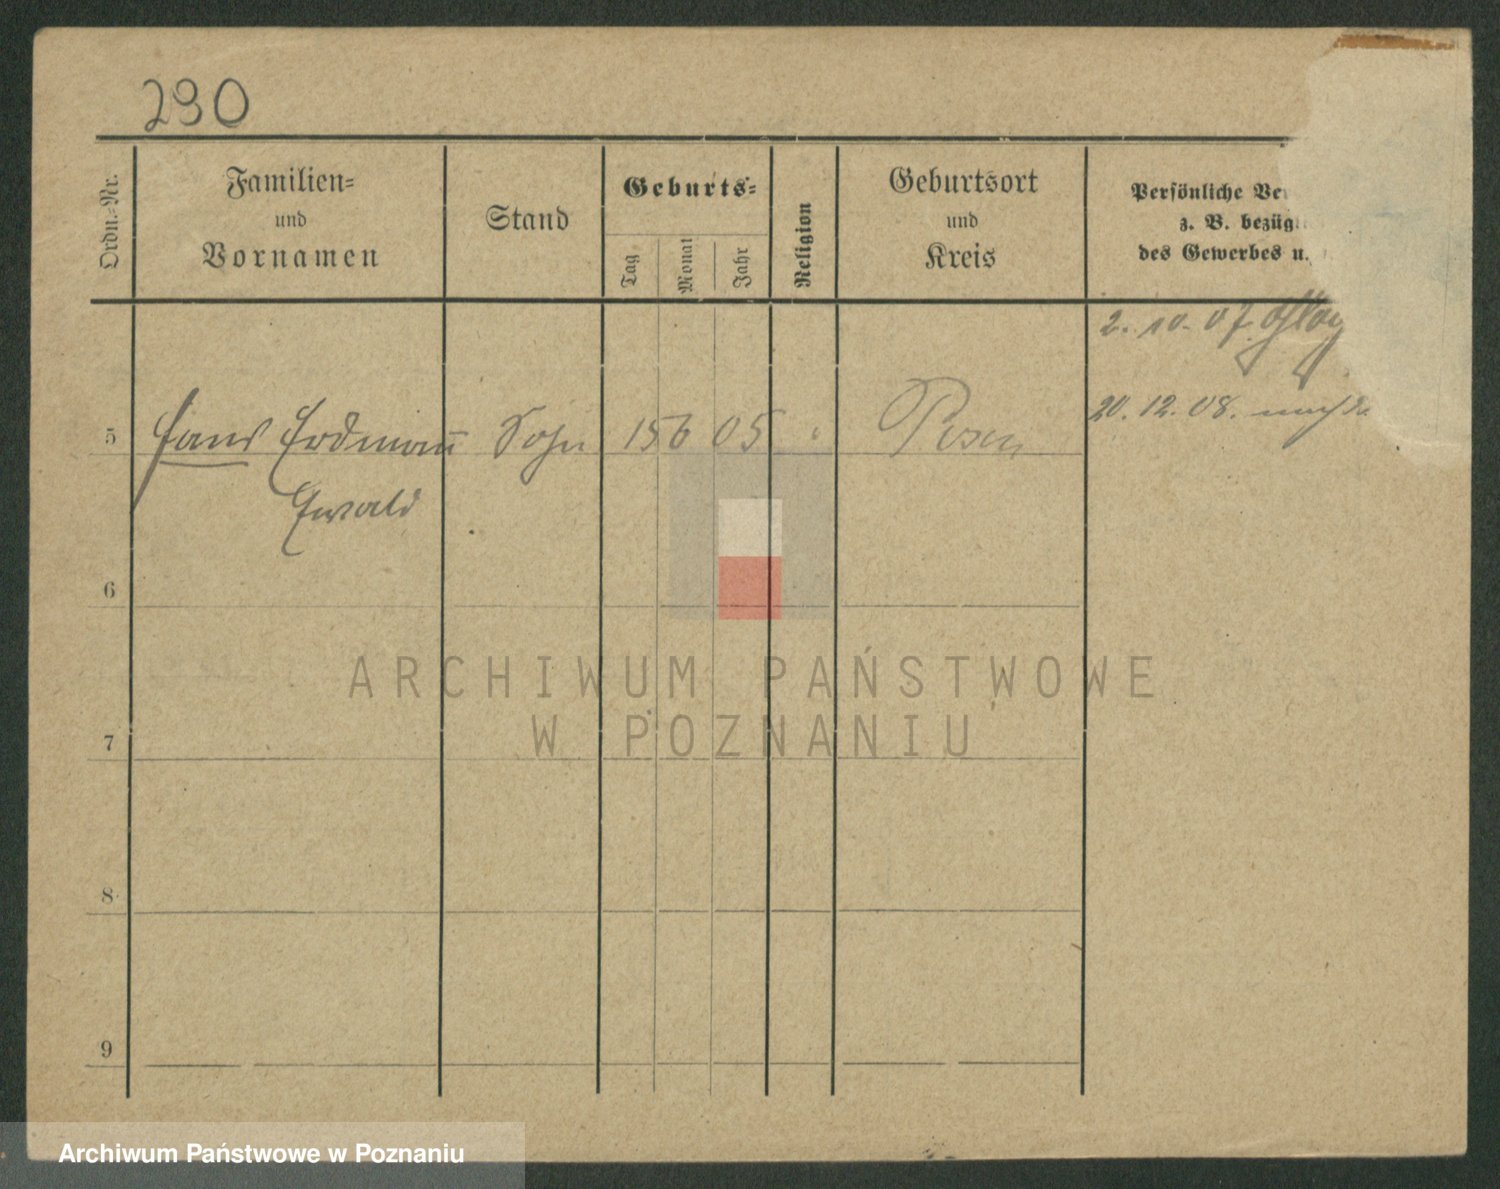 290
Ordn.-Nr.
Familien-
und
Vornamen
Stand
Geburts-
Tag
Monat
Jahr
Religion
Geburtsort
und
Kreis
Persönliche Ver
z. B. bezügl
des Gewerbes u.
2. 10. 07.
5 Hans Erdmann Sohn 15 6 05 " Posen
20. 12. 08. nach
Ewald
6
7
8
9
ARCHIWUM PAŃSTWOWE
W POZNANIU
Archiwum Państwowe w Poznaniu